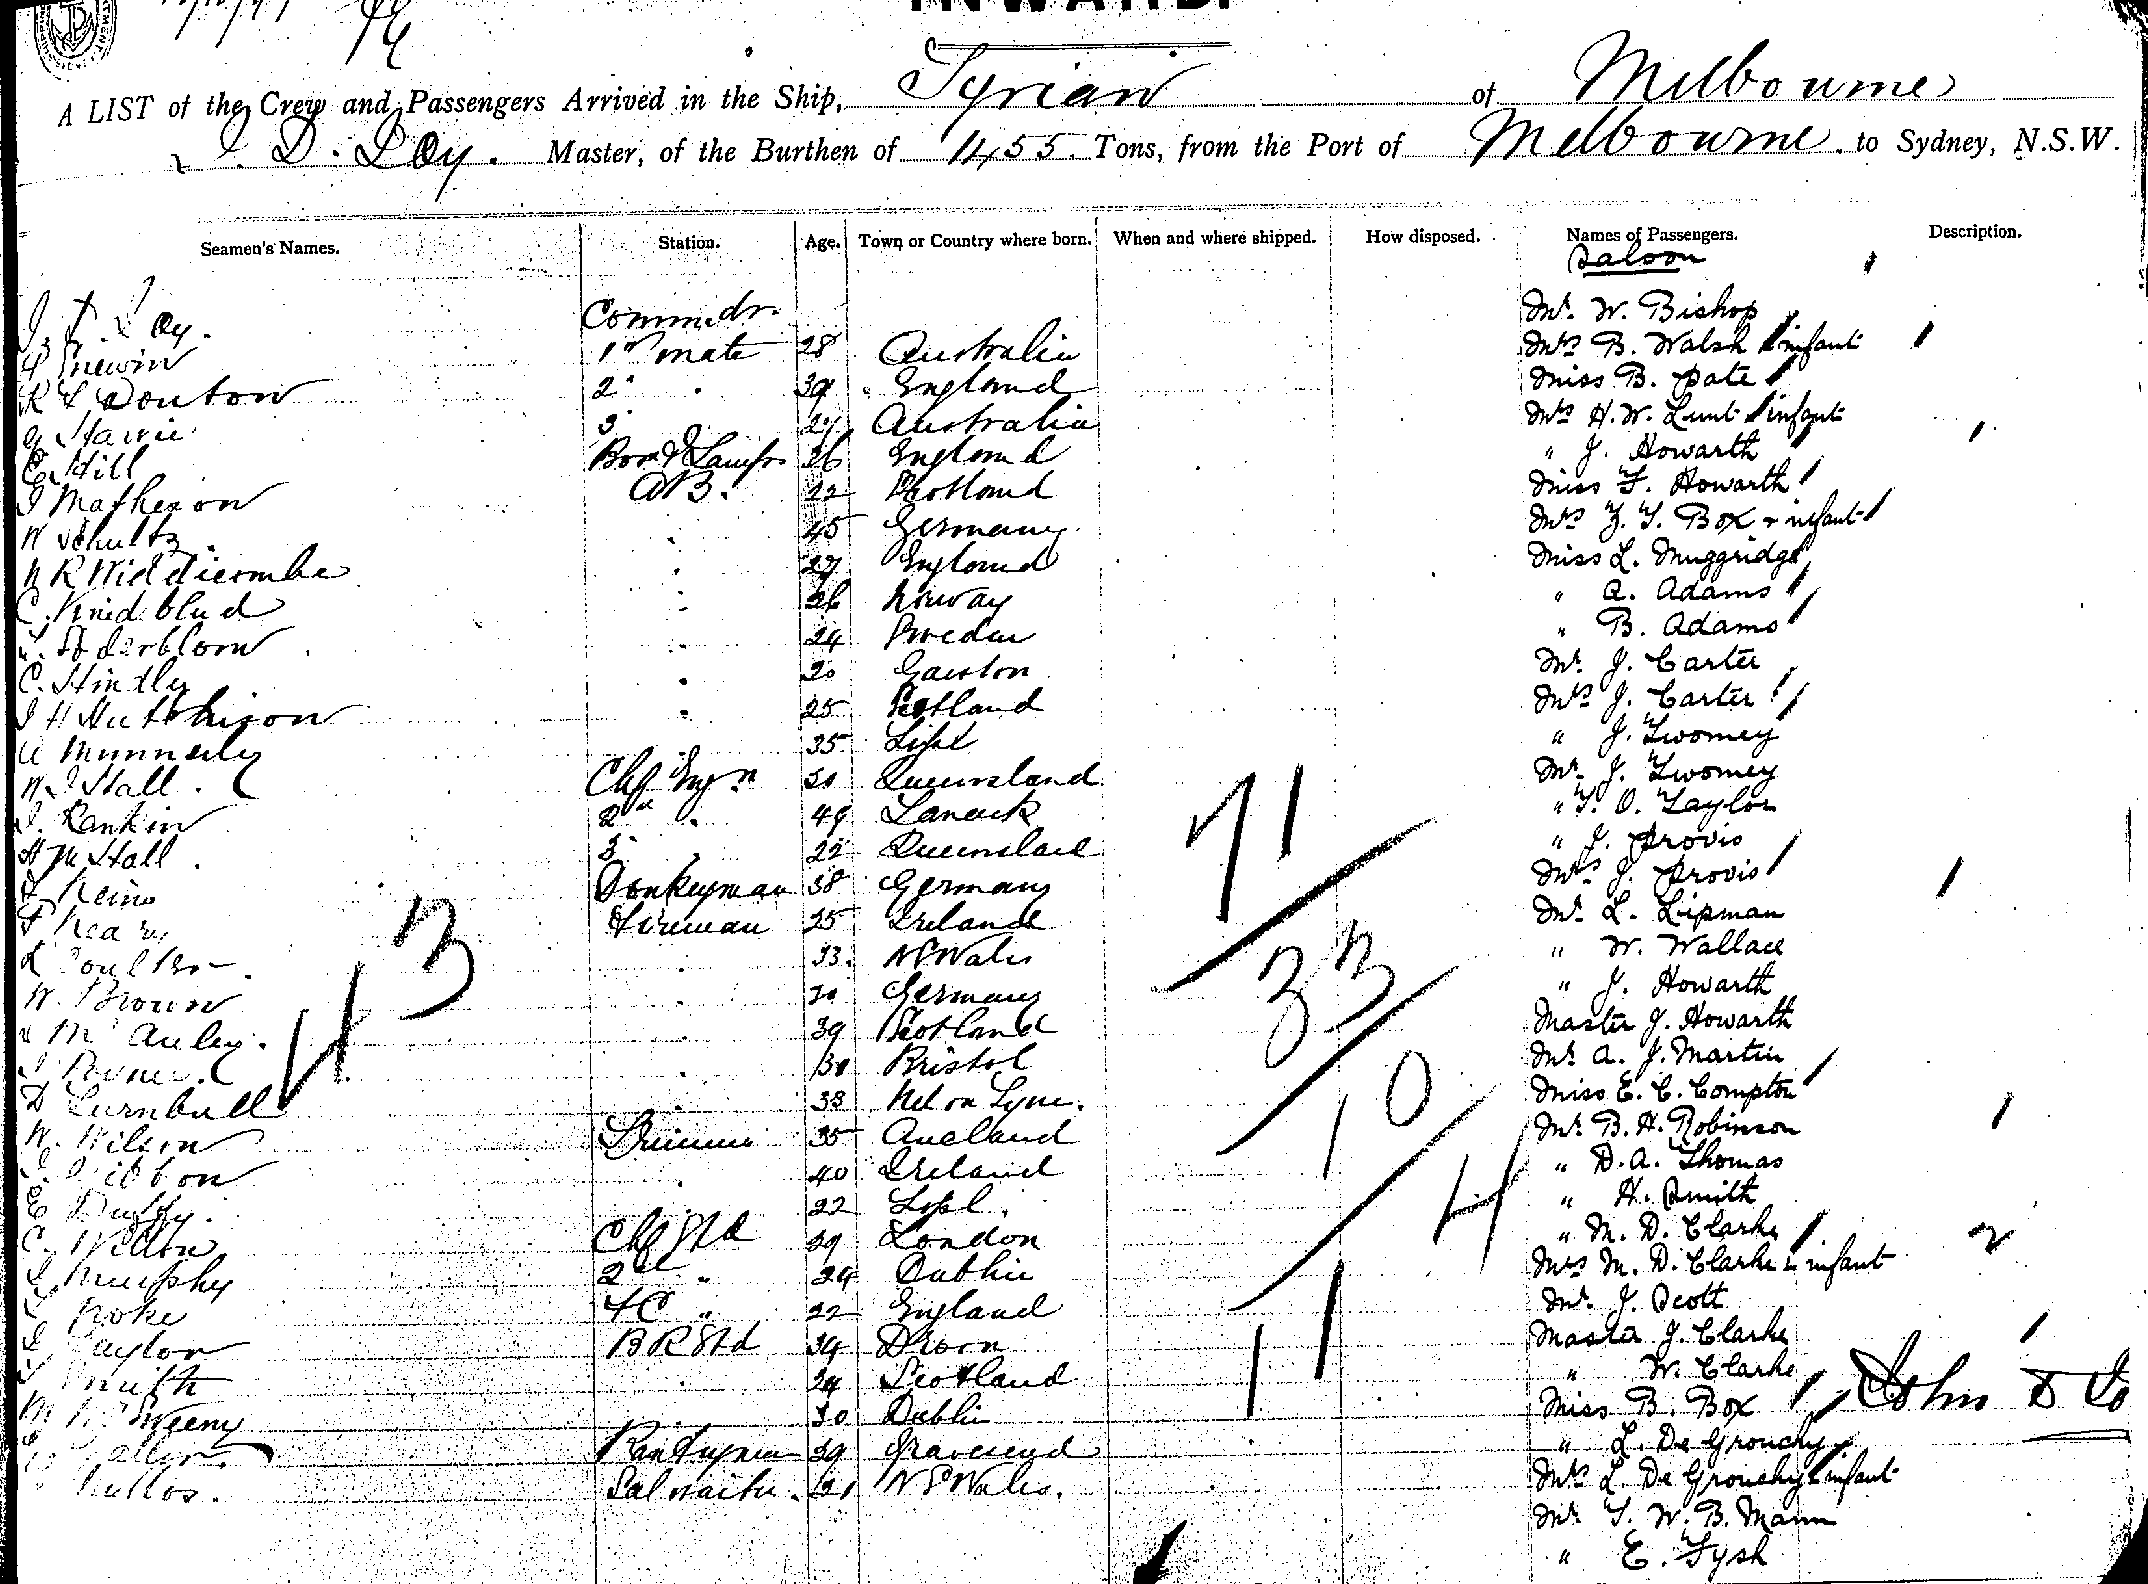 INWARD.
A LIST of the Crew and Passengers Arrived in the Ship, Syrian of Melbourne
J. D. Loy. Master, of the Burthen of 1455 Tons, from the Port of Melbourne to Sydney, N.S.W.
Seamen's Names. Station. Age. Town or Country where born. When and where shipped. How disposed. Names of Passengers. Description.
Saloon
J. D. Loy. Commdr. Mr. W. Bishop
1st mate 28 Australia Mrs B. Walsh & infant
2 " 39 England Miss B. Pate
3 27 Australia Mrs H. W. Lunt & infant
E Hill 26 England " J. Howarth
J Matheson AB. 22 Scotland Miss F. Howarth
W Schultz 45 Germany Mrs J. T. Box & infant
R Widdicombe 27 England Miss L. Muggridge
26 Norway " A. Adams
Soderblom 24 Sweden " B. Adams
C. Hindly 20 Garston Mr. J. Carter
J H Hutchison 25 Scotland Mrs J. Carter
A Munnerly 35 Lpool " J. Twomey
W J Hall Chf Engr 30 Queensland Mr. J. Twomey
J. Rankin 2nd " 49 Lanark " T. O. Taylor
H M Hall 3 22 Queensland " J. Provis
Heins Donkeyman 38 Germany Mrs J. Provis
Fireman 25 Ireland Mr. L. Lipman
33 N S Wales " W. Wallace
W. Brown 30 Germany " J. Howarth
McAuley 39 Scotland Master J. Howarth
30 Bristol Mr. A. J. Martin
D Turnbull 38 Miss E. C. Compton
W. Wilson Trimmer 35 Mr. B. H. Robinson
Gibbon 40 Ireland " D. A. Thomas
E Duffy 22 Lpool. " H. Smith
C. Welton Chf Std 39 London " M. D. Clarke
J Murphy 2nd " 24 Dublin Mrs M. D. Clarke & infant
22 England Mr. J. Scott
Taylor B R Std 34 Devon Master J. Clarke
Smith 24 Scotland " W. Clarke
M McSweeny 30 Dublin Miss B. Box
Pantryman 39 Gravesend " L. De Grouchy
Salwaiter 21 N S Wales. Mrs L. De Grouchy & infant
Mr. T. W. B. Mann
" E. Fysh
43
71
33
10
4
11
John D Lo